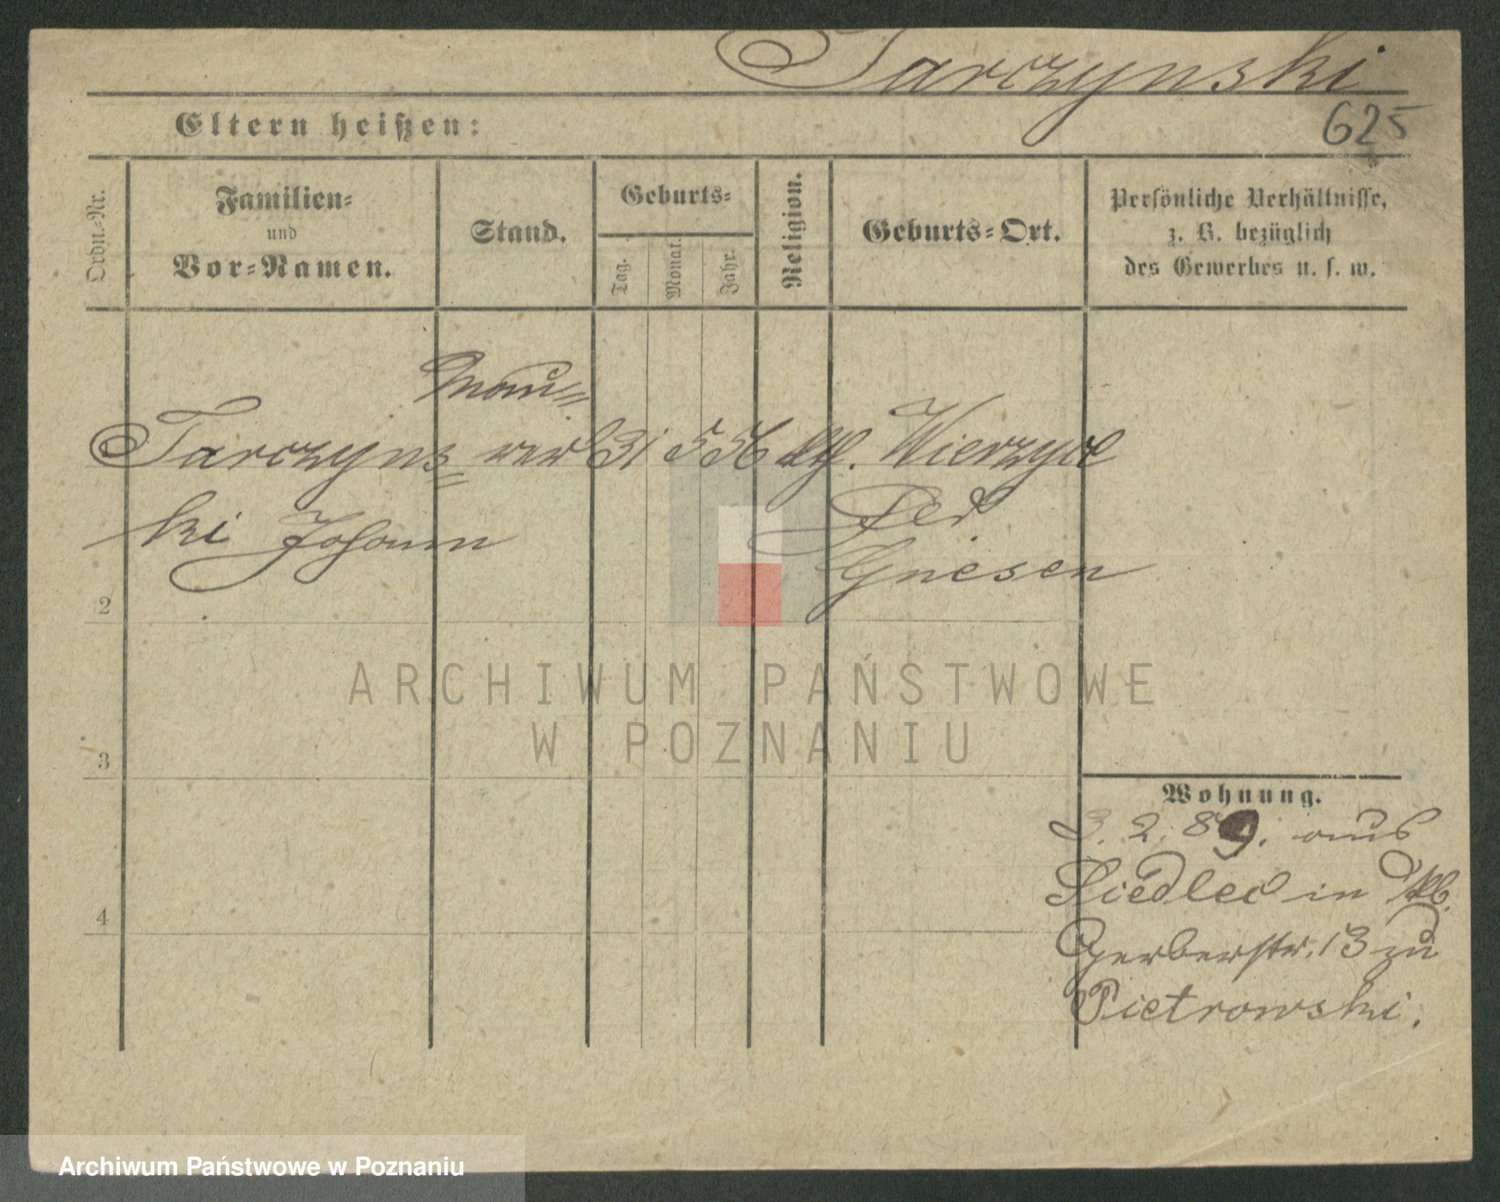 Tarczynski
Eltern heißen:
625
Ordn.-Nr.
Familien-
und
Vor-Namen.
Stand.
Geburts-
Tag.
Monat.
Jahr.
Religion.
Geburts-Ort.
Persönliche Verhältnisse,
z. B. bezüglich
des Gewerbes u. s. w.
Mau=
Tarczyns= rer 31 5 56 kth. Wierzyce
ki Johann
Gnesen
2
3
4
ARCHIWUM PAŃSTWOWE
W POZNANIU
Wohnung.
3. 2. 89. aus
Siedlec in
Gerberstr. 13 zu
Pietrowski.
Archiwum Państwowe w Poznaniu